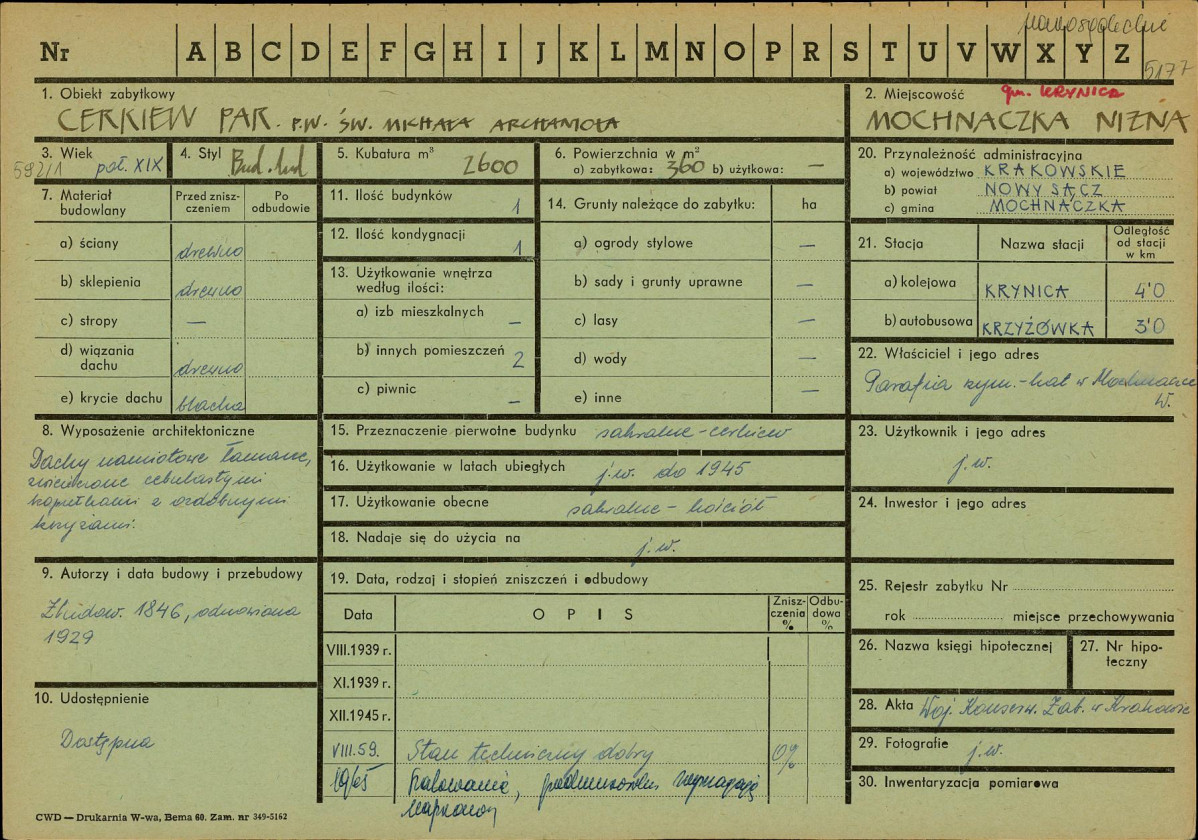 Nowosądeckie
Nr A B C D E F G H I J K L M N O P R S T U V W X Y Z
5177
1. Obiekt zabytkowy
CERKIEW PAR. P.W. ŚW. MICHAŁA ARCHANIOŁA
2. Miejscowość gm. KRYNICA
MOCHNACZKA NIŻNA
3. Wiek
592/1 poł. XIX
4. Styl Bud. lud
5. Kubatura m³
2600
6. Powierzchnia w m²
a) zabytkowa: 360 b) użytkowa: —
7. Materiał budowlany
Przed zniszczeniem
Po odbudowie
a) ściany drewno
b) sklepienia drewno
c) stropy —
d) wiązania dachu drewno
e) krycie dachu blacha
8. Wyposażenie architektoniczne
Dachy namiotowe łamane,
zwieńczone cebulastymi
kopułkami z ozdobnymi
krzyżami.
9. Autorzy i data budowy i przebudowy
Zbudow. 1846, odnowiona
1929
10. Udostępnienie
Dostępna
11. Ilość budynków 1
12. Ilość kondygnacji 1
13. Użytkowanie wnętrza
według ilości:
a) izb mieszkalnych —
b) innych pomieszczeń 2
c) piwnic —
14. Grunty należące do zabytku: ha
a) ogrody stylowe —
b) sady i grunty uprawne —
c) lasy —
d) wody —
e) inne —
15. Przeznaczenie pierwotne budynku sakralne - cerkiew
16. Użytkowanie w latach ubiegłych j.w. do 1945
17. Użytkowanie obecne sakralne - kościół
18. Nadaje się do użycia na j.w.
19. Data, rodzaj i stopień zniszczeń i odbudowy
Data O P I S Zniszczenia % Odbudowa %
VIII.1939 r.
XI.1939 r.
XII.1945 r.
VIII.59. Stan techniczny dobry 0%
1965 Szalowanie, podmurówka wymagają
naprawy
20. Przynależność administracyjna
a) województwo KRAKOWSKIE
b) powiat NOWY SĄCZ
c) gmina MOCHNACZKA
21. Stacja Nazwa stacji Odległość od stacji w km
a) kolejowa KRYNICA 4'0
b) autobusowa KRZYŻÓWKA 3'0
22. Właściciel i jego adres
Parafia rzym.-kat w Mochnaczce
W.
23. Użytkownik i jego adres
j.w.
24. Inwestor i jego adres
25. Rejestr zabytku Nr
rok miejsce przechowywania
26. Nazwa księgi hipotecznej
27. Nr hipoteczny
28. Akta Woj. Konserw. Zab. w Krakowie
29. Fotografie j.w.
30. Inwentaryzacja pomiarowa
CWD — Drukarnia W-wa, Bema 60. Zam. nr 349-5162